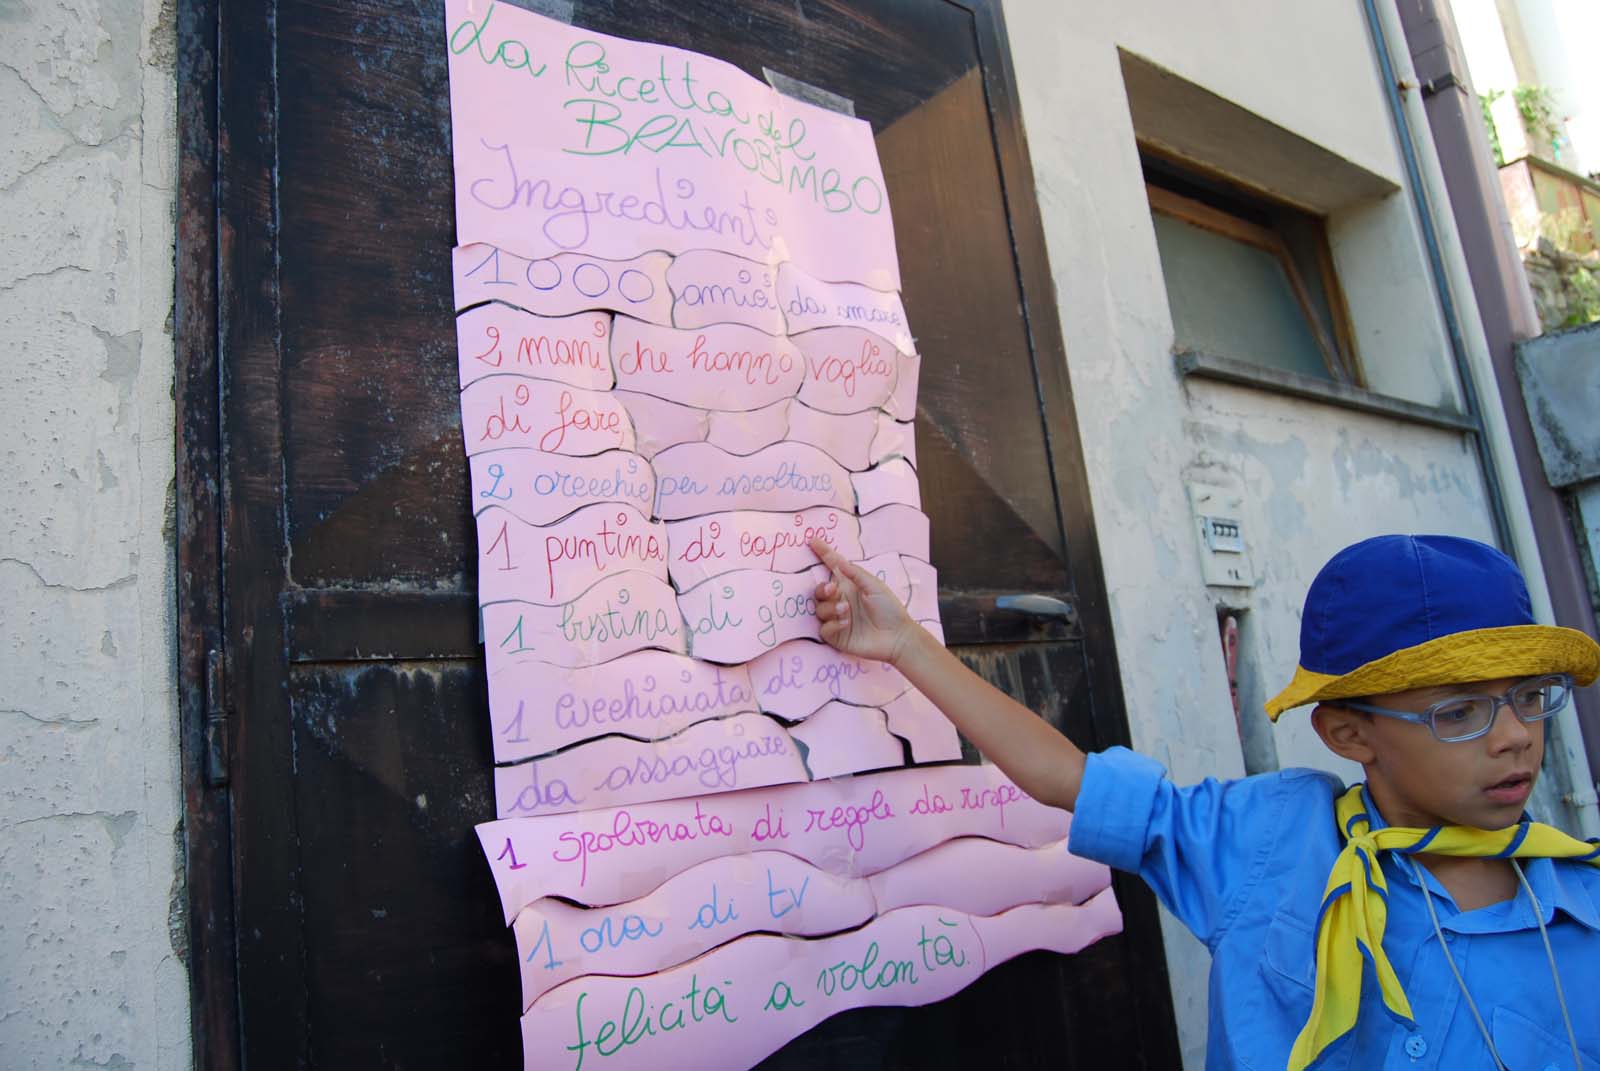 La Ricetta del
BRAVOBIMBO
Ingredienti
1000 amici da amare
2 mani che hanno voglia
di fare,
2 orecchie per ascoltare,
1 puntina di capricci
1 bustina di
1 cucchiaiata di ogni
da assaggiare
1 spolverata di regole da
1 ora di tv
felicità a volontà.